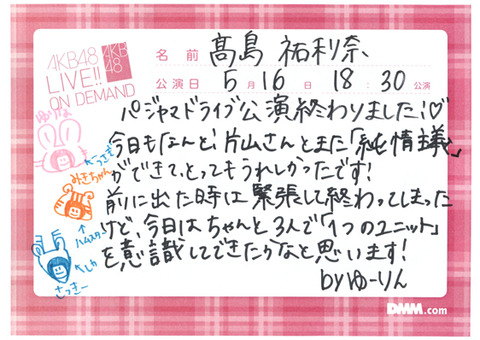 AKB48
LIVE!!
ON DEMAND
AKB
48
名前 髙島 祐利奈
公演日 5月16日 18:30公演
パジャマドライブ公演終わりました!♡
今日もなんと!片山さんとまた「純情主義」
ができて、とってもうれしかったです!
前に出た時は緊張して終わってしまった
けど、今日はちゃんと3人で「1つのユニット」
を意識してできたかなと思います!
byゆーりん
ゆりな
←うさぎ
みきちゃん
↑ハムスター
さっきー
DMM.com